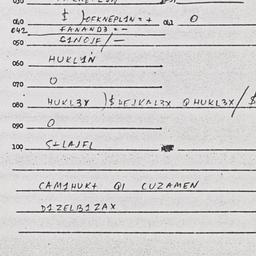 040 $ )OFKNEPL1N = + 041 O
042 FANAND3 = -
050 G1NOJF / -
060 HUKL1N
070 O
080 HUKL3X )$ Q HUKL3X / $
090 O
100 S+LAJFL
CAM1HUK+ Q1 CUZAMEN
D1ZELB1ZAX